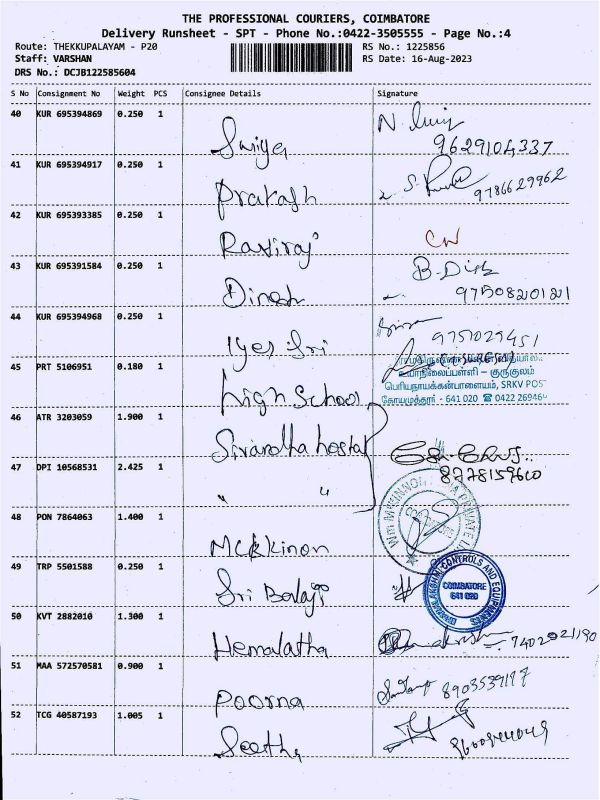 THE PROFESSIONAL COURIERS, COIMBATORE
Delivery Runsheet - SPT - Phone No.:0422-3505555 - Page No.:4
Route: THEKKUPALAYAM - P20
RS No.: 1225856
Staff: VARSHAN
RS Date: 16-Aug-2023
DRS No.: DCJB122585604
S No Consignment No Weight PCS Consignee Details Signature
40 KUR 695394869 0.250 1
9629104337
41 KUR 695394917 0.250 1
Prakash 9786629962
42 KUR 695393385 0.250 1
Raviraj
43 KUR 695391584 0.250 1
Dinesh
44 KUR 694394968 0.250 1
Iyer Sri 9751029451
45 PRT 5106951 0.180 1
High School
பெரியநாயக்கன்பாளையம், SRKV POST
கோயமுத்தூர் - 641 020 ☎ 0422 26946
46 ATR 3203059 1.900 1
hostal
8778159600
47 DPI 10568531 2.425 1
" "
48 PON 7864063 1.400 1
Mckkinon
49 TRP 5501588 0.250 1
Sri Balaji
CONTROLS AND EQUIPMENTS
COIMBATORE
641 020
50 KVT 2882010 1.300 1
Hemalatha 7402021190
51 MAA 572570581 0.900 1
Poorna 8903539117
52 TCG 40587193 1.005 1
Seetha